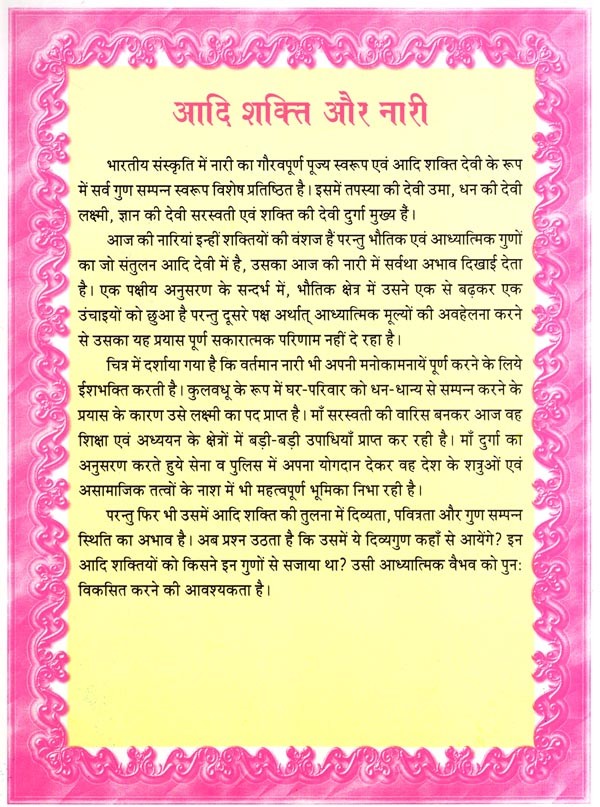 आदि शक्ति और नारी
भारतीय संस्कृति में नारी का गौरवपूर्ण पूज्य स्वरूप एवं आदि शक्ति देवी के रूप
में सर्व गुण सम्पन्न स्वरूप विशेष प्रतिष्ठित है। इसमें तपस्या की देवी उमा, धन की देवी
लक्ष्मी, ज्ञान की देवी सरस्वती एवं शक्ति की देवी दुर्गा मुख्य हैं।
आज की नारियां इन्हीं शक्तियों की वंशज हैं परन्तु भौतिक एवं आध्यात्मिक गुणों
का जो संतुलन आदि देवी में है, उसका आज की नारी में सर्वथा अभाव दिखाई देता
है। एक पक्षीय अनुसरण के सन्दर्भ में, भौतिक क्षेत्र में उसने एक से बढ़कर एक
उंचाइयों को छुआ है परन्तु दूसरे पक्ष अर्थात् आध्यात्मिक मूल्यों की अवहेलना करने
से उसका यह प्रयास पूर्ण सकारात्मक परिणाम नहीं दे रहा है।
चित्र में दर्शाया गया है कि वर्तमान नारी भी अपनी मनोकामनायें पूर्ण करने के लिये
ईशभक्ति करती है। कुलवधू के रूप में घर-परिवार को धन-धान्य से सम्पन करने के
प्रयास के कारण उसे लक्ष्मी का पद प्राप्त है। माँ सरस्वती की वारिस बनकर आज वह
शिक्षा एवं अध्ययन के क्षेत्रों में बड़ी-बड़ी उपाधियाँ प्राप्त कर रही है। माँ दुर्गा का
अनुसरण करते हुये सेना व पुलिस में अपना योगदान देकर वह देश के शत्रुओं एवं
असामाजिक तत्वों के नाश में भी महत्वपूर्ण भूमिका निभा रही है।
परन्तु फिर भी उसमें आदि शक्ति की तुलना में दिव्यता, पवित्रता और गुण सम्पन
स्थिति का अभाव है। अब प्रश्न उठता है कि उसमें ये दिव्यगुण कहाँ से आयेंगे? इन
आदि शक्तियों को किसने इन गुणों से सजाया था? उसी आध्यात्मिक वैभव को पुनः
विकसित करने की आवश्यकता है।